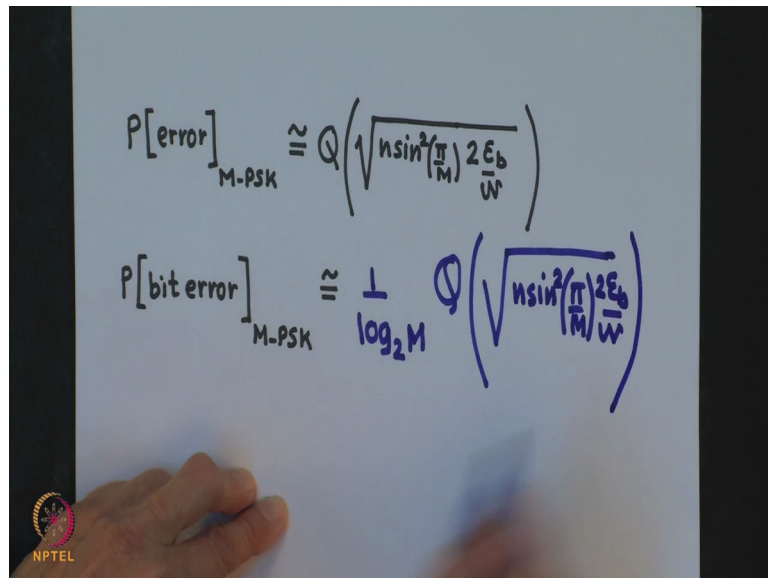 P[error]_{M-PSK} ≅ Q(√(n sin²(π/M) 2ℰ_b/𝒩))
P[bit error]_{M-PSK} ≅ 1/log₂M Q(√(n sin²(π/M) 2ℰ_b/𝒩))
NPTEL